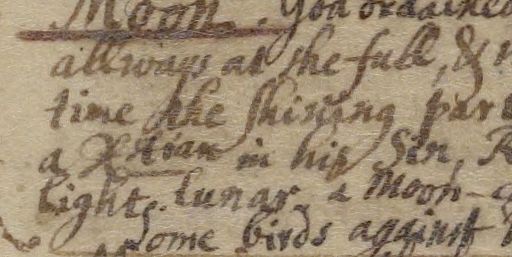 Moon. God ordained
allways at the full, &
time the shining par
a Xtian in his Sin,
light. lunar a Moon
some birds against